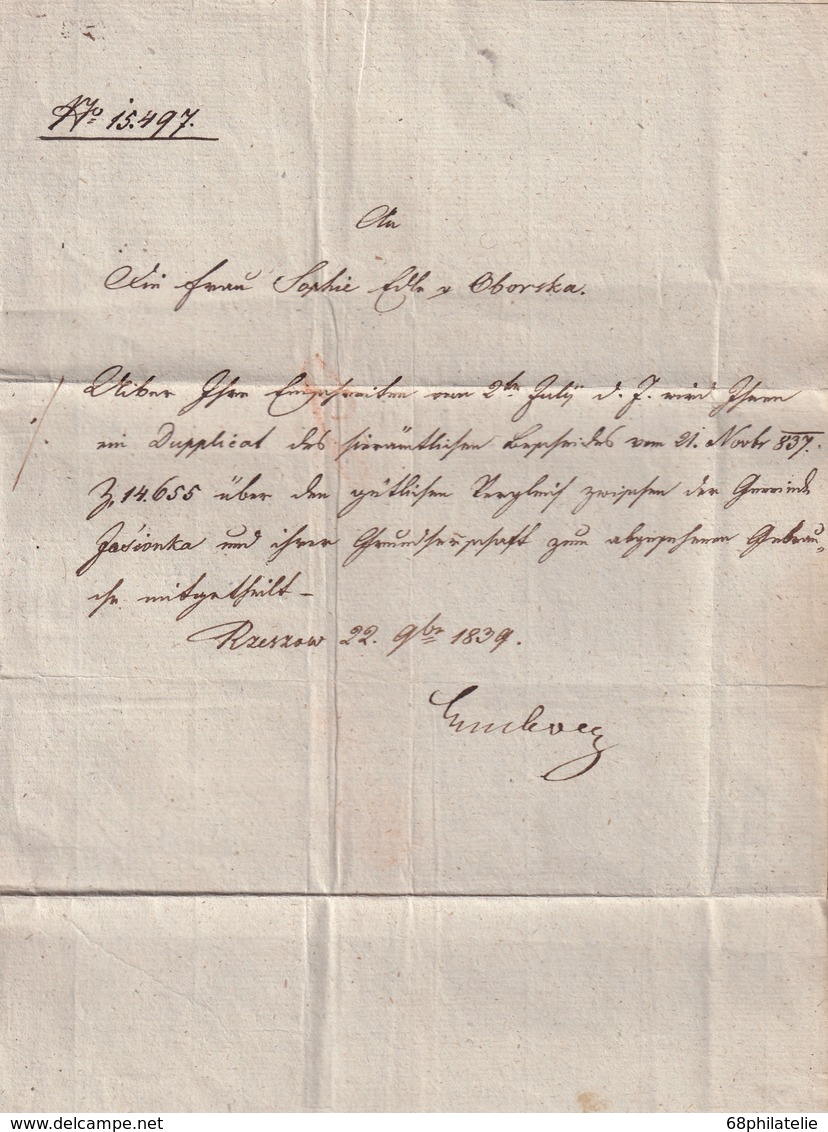 No 15.497.
An
Die Frau Sophie Edle v Oborska.
Uiber Ihr Einschreiten vom 2ten July d. J. wird Ihnen
ein Dupplicat des hierämtlichen Bescheides vom 21. Novbr 837.
Z. 14.655 über den gütlichen Vergleich zwischen der Gemeinde
Jasionka und ihrer Grundherrschaft zum abgesehenen Gebrau-
che mitgetheilt –
Rzeszow 22. 9br 1839.
68philatelie